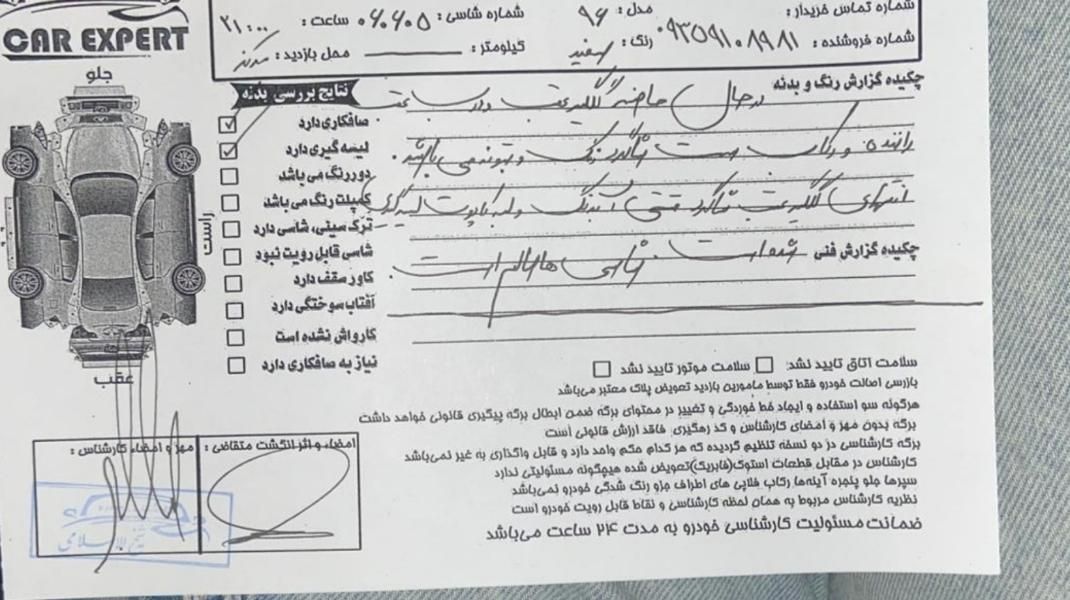 شماره تماس خریدار :
مدل : ۹۶
شماره شاسی : ۰۶۰۶۰۵
ساعت : ۲۱:۰۰
CAR EXPERT
شماره فروشنده : ۰۹۳۵۹۱۰۸۹۸۱
رنگ : سفید
کیلومتر :
محل بازدید : مرکز
جلو
راست
عقب
نتایج بررسی بدنه
صافکاری دارد
لیسه گیری دارد
دور رنگ می باشد
کمپلت رنگ می باشد
ترک سینی، شاسی دارد
شاسی قابل رویت نبود
کاور سقف دارد
آفتاب سوختگی دارد
کارواش نشده است
نیاز به صافکاری دارد
چکیده گزارش رنگ و بدنه
در حال حاضر گلگیر عقب و درب عقب
راننده و رکاب است شاگرد رنگ و بتونه می باشد.
انتهای گلگیر عقب شاگرد رنگ و لبه کاپوت لیسه گیری
چکیده گزارش فنی
شده است. شاسی ها سالم است.
سلامت اتاق تایید نشد:
سلامت موتور تایید نشد
بازرسی اصالت خودرو فقط توسط مامورین بازدید تعویض پلاک معتبر می‌باشد
هرگونه سو استفاده و ایجاد خط خوردگی و تغییر در محتوای برگه ضمن ابطال برگه پیگیری قانونی خواهد داشت
برگه بدون مهر و امضای کارشناس و کد رهگیری فاقد ارزش قانونی است
برگه کارشناسی در دو نسخه تنظیم گردیده که هر کدام حکم واحد دارد و قابل واگذاری به غیر نمی‌باشد
کارشناس در مقابل قطعات استوک(فابریک)تعویض شده هیچگونه مسئولیتی ندارد
سپرها جلو پنجره آینه‌ها رکاب فلاپی های اطراف جزو رنگ شدگی خودرو نمی‌باشد
نظریه کارشناس مربوط به همان لحظه کارشناسی و نقاط قابل رویت خودرو است
ضمانت مسئولیت کارشناسی خودرو به مدت ۲۴ ساعت می‌باشد
امضاء و اثر انگشت متقاضی :
مهر و امضاء کارشناس :
شیخ الاسلامی